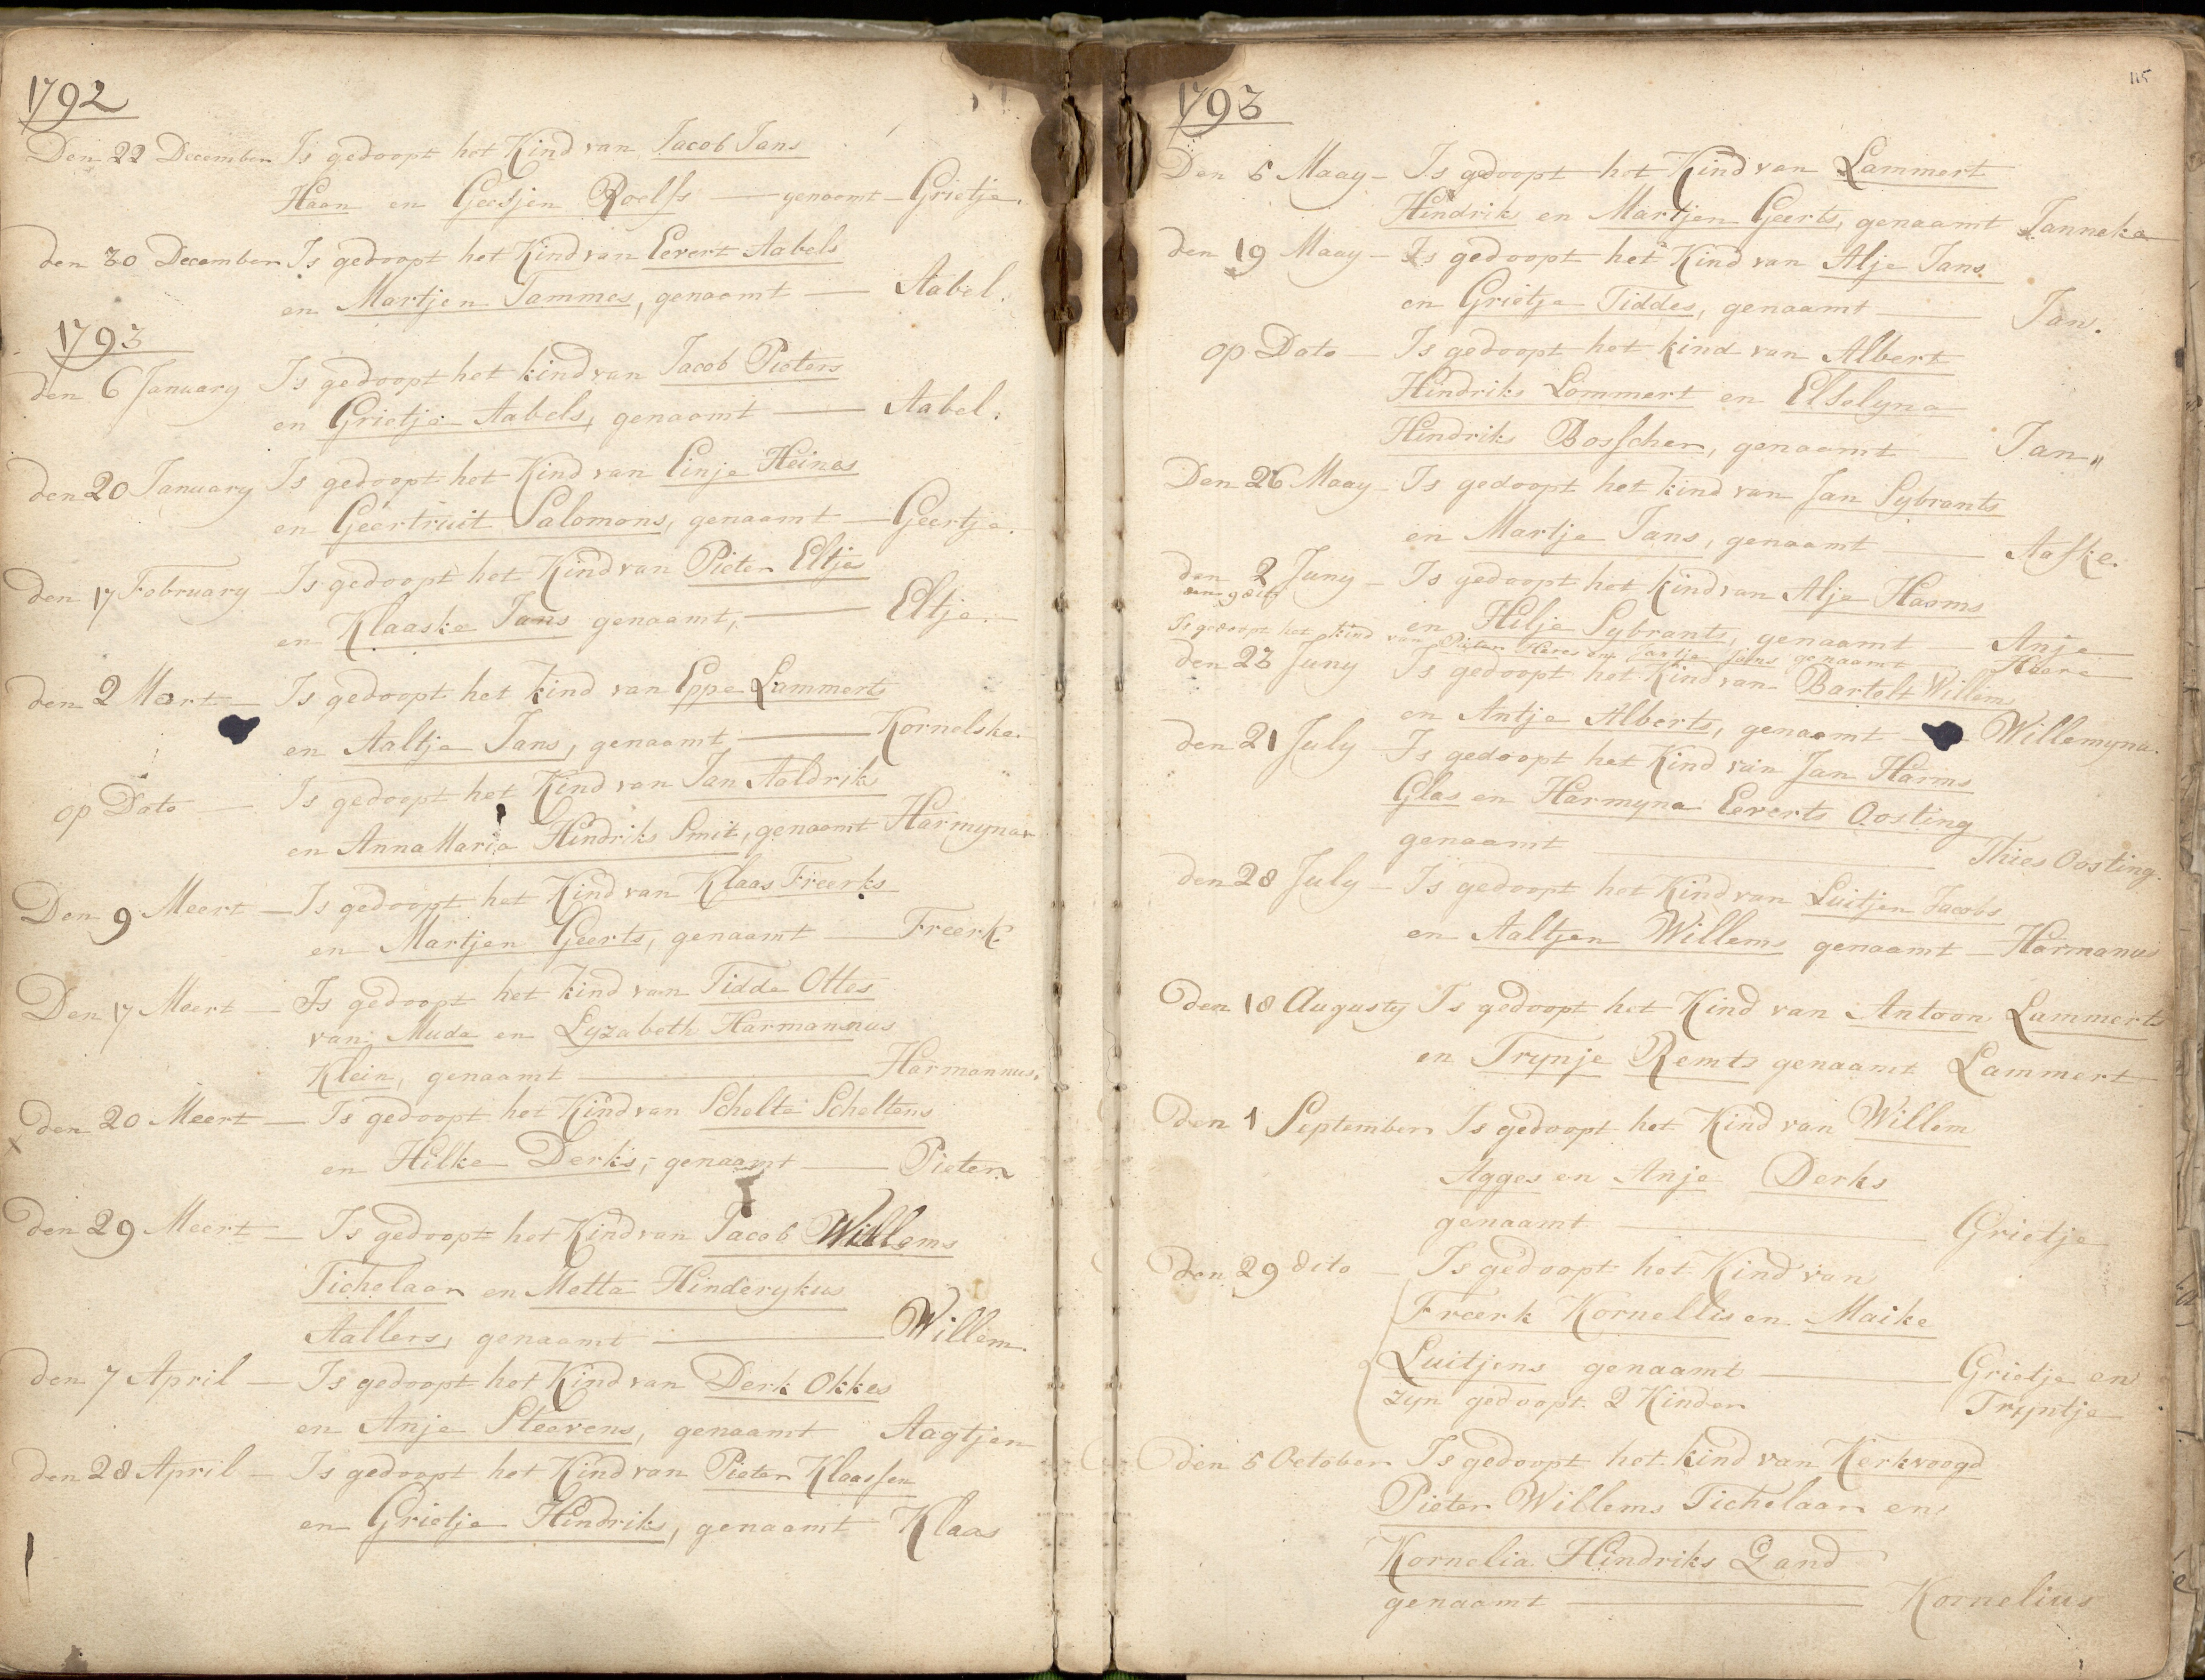 1792
Den 22 December Is gedoopt het Kind van Jacob Jans
Haan en Geesjen Roelfs — genaamt — Grietje.
den 30 December Is gedoopt het Kind van Eevert Aabels
en Martjen Tammes, genaamt — Aabel.
1793
den 6 January Is gedoopt het kind van Jacob Pieters
en Grietje Aabels, genaamt — Aabel.
den 20 January Is gedoopt het Kind van Einje Heines
en Geertruit Salomons, genaamt — Geertje.
den 17 February Is gedoopt het Kind van Pieter Eltje
en Klaaske Jans genaamt, — Eltje.
den 2 Mart — Is gedoopt het kind van Eppe Lammerts
en Aaltje Jans, genaamt, — Kornelske.
op Dato — Is gedoopt het Kind van Jan Aaldriks
en Anna Maria Hindriks Smit, genaamt Harmyna
Den 9 Meert — Is gedoopt het Kind van Klaas Freerks
en Martjen Geerts, genaamt — Freerk.
Den 17 Meert — Is gedoopt het kind van Tidde Ottes
van Mude en Lyzabeth Harmannus
Klein, genaamt — Harmannus.
den 20 Meert — Is gedoopt het Kind van Schelte Scheltens
en Hilke Derks, genaamt — Pieter
den 29 Meert — Is gedoopt het Kind van Jacob Willems
Tichelaar en Metta Hinderykus
Aallers, genaamt — Willem.
den 7 April — Is gedoopt het Kind van Derk Okkes
en Anje Steevens, genaamt Aagtjen
den 28 April — Is gedoopt het Kind van Pieter Klaassen
en Grietje Hindriks, genaamt Klaas
115
1793
Den 5 Maay — Is gedoopt het Kind van Lammert
Hindrik en Martjen Geerts, genaamt Janneka
den 19 Maay — Is gedoopt het Kind van Alje Jans
en Grietje Tiddes, genaamt — Jan.
op Dato — Is gedoopt het kind van Albert
Hindriks Lommert en Elselyna
Hindriks Bosscher, genaamt — Jan"
Den 26 Maay — Is gedoopt het kind van Jan Sybrants
en Martje Jans, genaamt — Aafke.
den 2 Juny — Is gedoopt het kind van Alje Harms
en Hilje Sybrants, genaamt Anje
den 9 dito
Is gedoopt het kind van Pieter Heres en Jantje Jans genaamt Heere
den 23 Juny Is gedoopt het Kind van Bartelt Willems
en Antje Alberts, genaamt — Willemyna.
den 21 July — Is gedoopt het Kind van Jan Harms
Glas en Harmyna Eeverts Oosting
genaamt — Thies Oosting.
den 28 July — Is gedoopt het Kind van Luitjen Jacobs
en Aaltjen Willems genaamt — Harmanus
den 18 Augusty Is gedoopt het Kind van Antoon Lammerts
en Trynje Remts genaamt Lammert
den 1 September Is gedoopt het Kind van Willem
Agges en Anje Derks
genaamt — Grietje
den 29 dito — Is gedoopt het Kind van
Freerk Kornellis en Maike
Luitjens genaamt — Grietje en
zyn gedoopt 2 Kinder Tryntje
den 5 October Is gedoopt het kind van Kerkvoogd
Pieter Willems Tichelaar en
Kornelia Hindriks Zand
genaamt — Kornelius